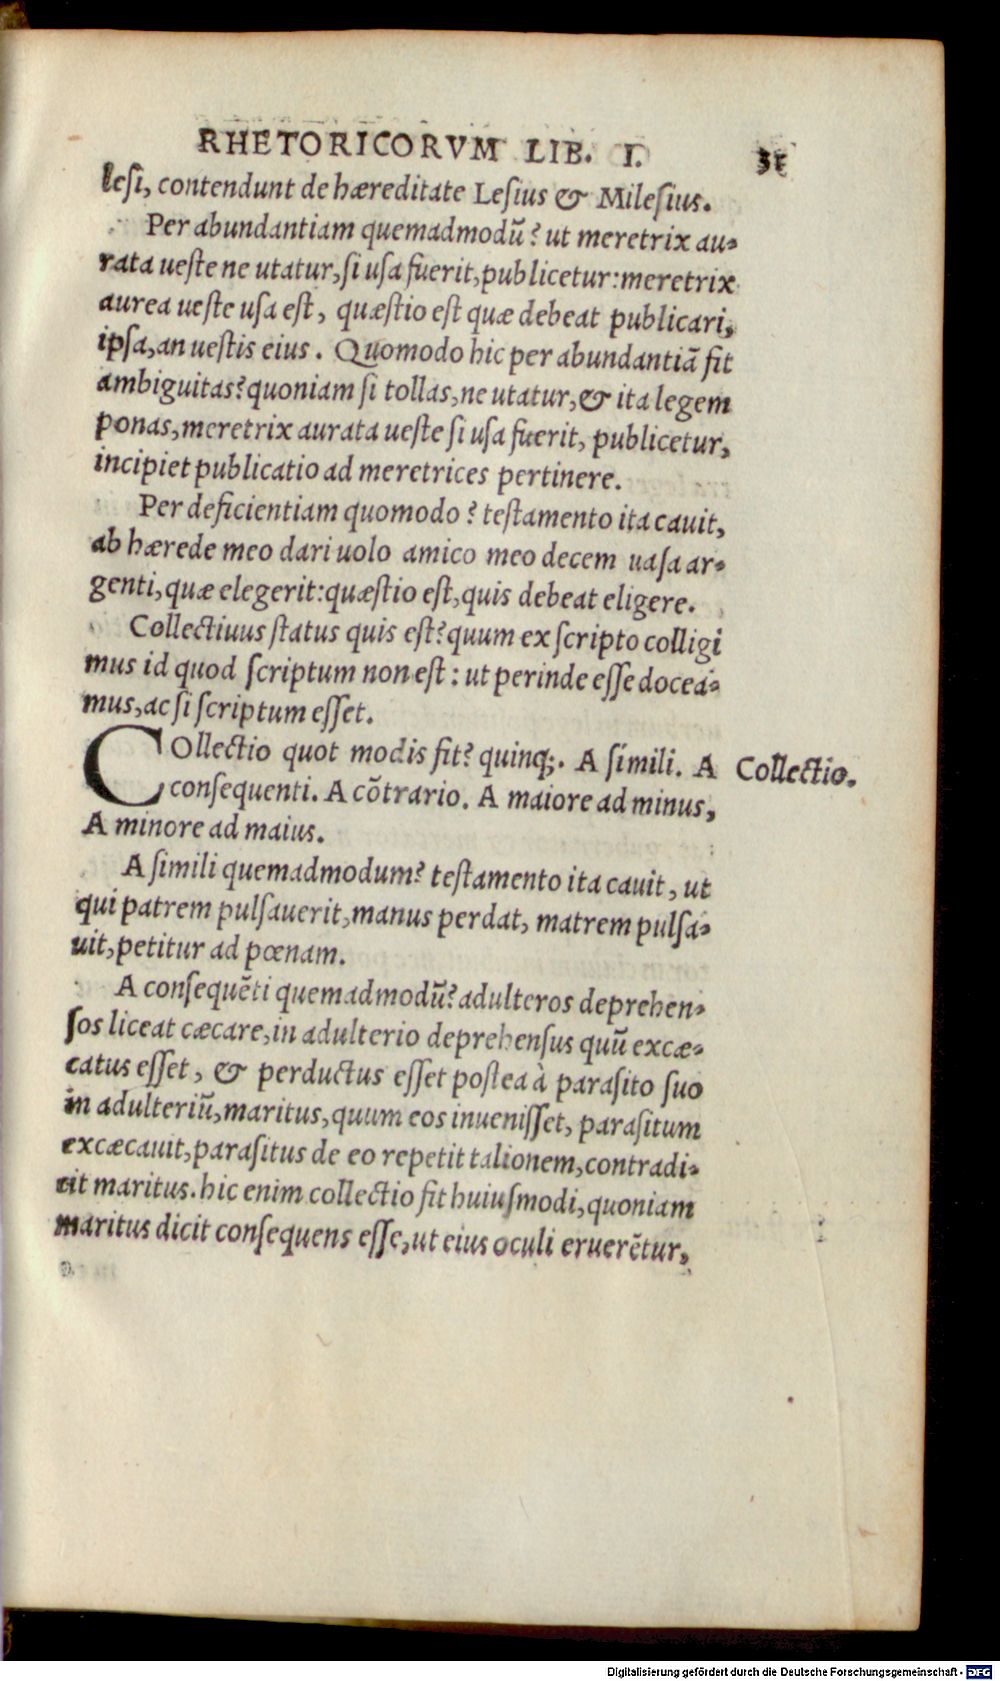 RHETORICORVM LIB. I. 31
lesi, contendunt de hæreditate Lesius & Milesius.
Per abundantiam quemadmodũ? ut meretrix au-
rata ueste ne utatur, si usa fuerit, publicetur: meretrix
aurea ueste usa est, quæstio est quæ debeat publicari,
ipsa, an uestis eius. Quomodo hic per abundantiã fit
ambiguitas? quoniam si tollas, ne utatur, & ita legem
ponas, meretrix aurata ueste si usa fuerit, publicetur,
incipiet publicatio ad meretrices pertinere.
Per deficientiam quomodo? testamento ita cauit,
ab hærede meo dari uolo amico meo decem uasa ar-
genti, quæ elegerit: quæstio est, quis debeat eligere.
Collectiuus status quis est? quum ex scripto colligi
mus id quod scriptum non est: ut perinde esse docea-
mus, ac si scriptum esset.
COllectio quot modis fit? quinq;. A simili. A
Collectio.
consequenti. A cõtrario. A maiore ad minus,
A minore ad maius.
A simili quemadmodum? testamento ita cauit, ut
qui patrem pulsauerit, manus perdat, matrem pulsa-
uit, petitur ad pœnam.
A consequẽti quemadmodũ? adulteros deprehen-
sos liceat cæcare, in adulterio deprehensus quũ excæ-
catus esset, & perductus esset postea à parasito suo
in adulteriũ, maritus, quum eos inuenisset, parasitum
excæcauit, parasitus de eo repetit talionem, contradi-
cit maritus. hic enim collectio fit huiusmodi, quoniam
maritus dicit consequens esse, ut eius oculi eruerẽtur,
Digitalisierung gefördert durch die Deutsche Forschungsgemeinschaft - DFG